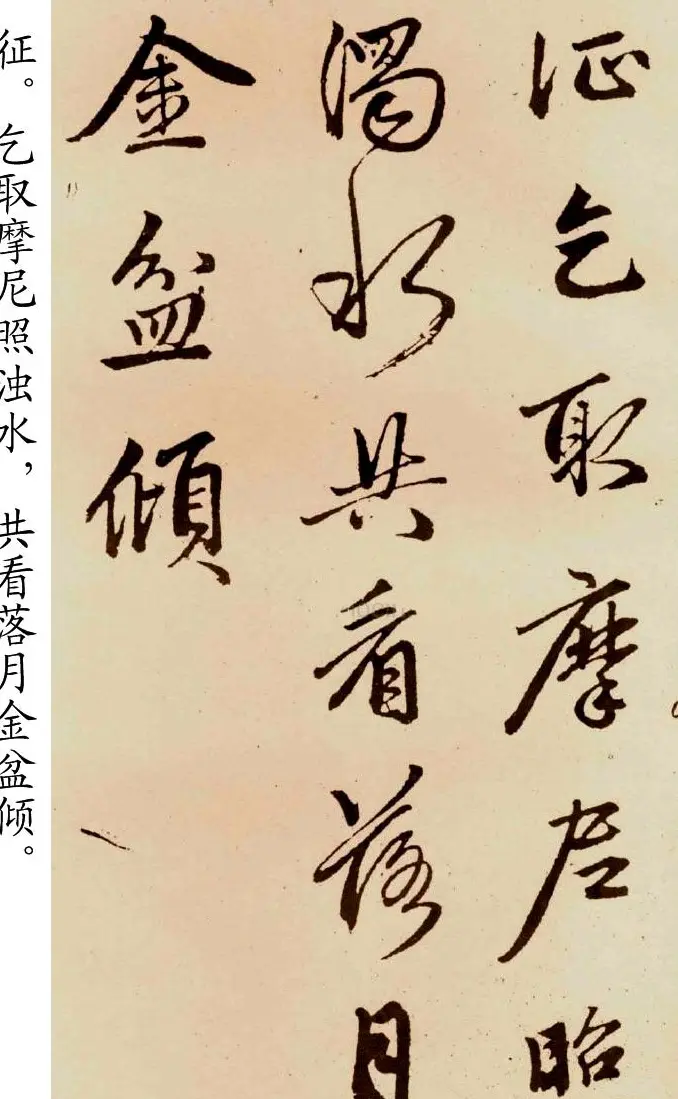 征乞取摩尼照
濁水共看落月
金盆傾
征。乞取摩尼照浊水，共看落月金盆倾。